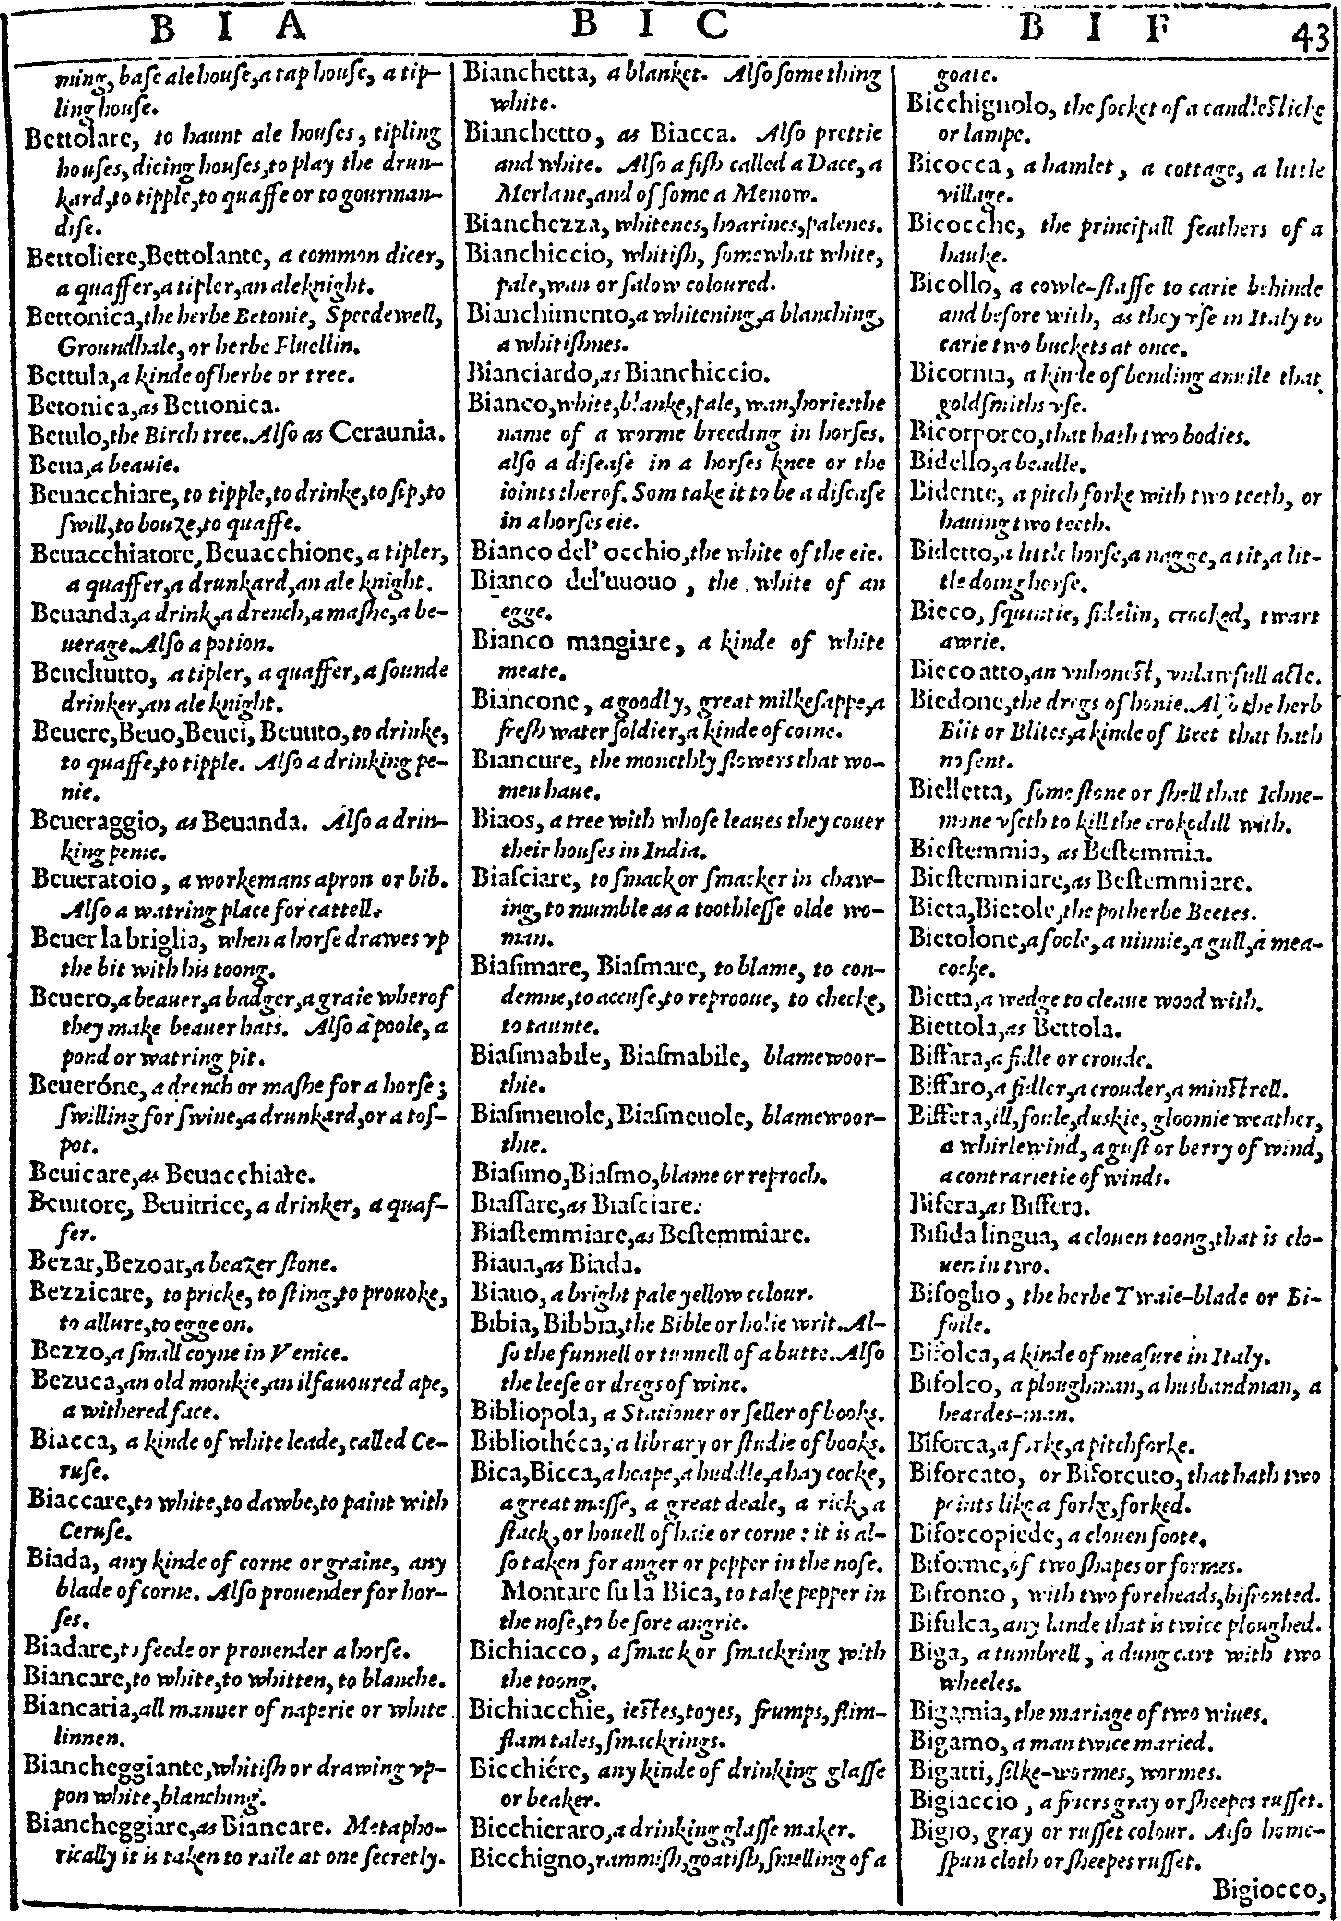 B I A B I C B I F 43
ming, baſe ale houſe, a tap houſe, a tip-
ling houſe.
Bettolare, to haunt ale houſes, tipling
houſes, dicing houſes, to play the drun-
kard, to tipple, to quaffe or to gourman-
diſe.
Bettoliere, Bettolante, a common dicer,
a quaffer, a tipler, an ale knight.
Bettonica, the herbe Betonie, Speedewell,
Groundhale, or herbe Fluellin.
Bettula, a kinde of herbe or tree.
Betonica, as Bettonica.
Betulo, the Birch tree. Alſo as Ceraunia.
Beua, a beauie.
Beuacchiare, to tipple, to drinke, to ſip, to
ſwill, to bouze, to quaffe.
Beuacchiatore, Beuacchione, a tipler,
a quaffer, a drunkard, an ale knight.
Beuanda, a drink, a drench, a maſhe, a be-
uerage. Alſo a potion.
Beuehutto, a tipler, a quaffer, a ſounde
drinker, an ale knight.
Beuere, Beuo, Beuei, Beuuto, to drinke,
to quaffe, to tipple. Alſo a drinking pe-
nie.
Beueraggio, as Beuanda. Alſo a drin-
king penie.
Beueratoio, a workemans apron or bib.
Alſo a watring place for cattell.
Beuer la briglia, when a horſe drawes vp
the bit with his toong.
Beuero, a beauer, a badger, a graie wherof
they make beauer hats. Alſo a poole, a
pond or watring pit.
Beueróne, a drench or maſhe for a horſe;
ſwilling for ſwine, a drunkard, or a toſ-
pot.
Beuicare, as Beuacchiare.
Beuitore, Beuitrice, a drinker, a quaf-
fer.
Bezar, Bezoar, a beazer ſtone.
Bezzicare, to pricke, to ſting, to prouoke,
to allure, to egge on.
Bezzo, a ſmall coyne in Venice.
Bezuca, an old monkie, an ilfauoured ape,
a withered face.
Biacca, a kinde of white leade, called Ce-
ruſe.
Biaccare, to white, to dawbe, to paint with
Ceruſe.
Biada, any kinde of corne or graine, any
blade of corne. Alſo prouender for hor-
ſes.
Biadare, to feede or prouender a horſe.
Biancare, to white, to whitten, to blanche.
Biancaria, all manner of naperie or white
linnen.
Biancheggiante, whitiſh or drawing vp-
pon white, blanching.
Biancheggiare, as Biancare. Metapho-
rically it is taken to raile at one ſecretly.
Bianchetta, a blanket. Alſo ſome thing
white.
Bianchetto, as Biacca. Alſo prettie
and white. Alſo a fiſh called a Dace, a
Merlane, and of ſome a Menow.
Bianchezza, whitenes, hoarines, palenes.
Bianchiccio, whitiſh, ſomewhat white,
pale, wan or ſalow coloured.
Bianchimento, a whitening, a blanching,
a whitiſhnes.
Bianciardo, as Bianchiccio.
Bianco, white, blanke, pale, wan, horie: the
name of a worme breeding in horſes.
alſo a diſeaſe in a horſes knee or the
ioints therof. Som take it to be a diſeaſe
in a horſes eie.
Bianco del' occhio, the white of the eie.
Bianco del'uuouo, the white of an
egge.
Bianco mangiare, a kinde of white
meate.
Biancone, a goodly, great milkeſappe, a
freſh water ſoldier, a kinde of coine.
Biancure, the monethly flowers that wo-
men haue.
Biaos, a tree with whoſe leaues they couer
their houſes in India.
Biaſciare, to ſmack or ſmacker in chaw-
ing, to mumble as a toothleſſe olde wo-
man.
Biaſimare, Biaſmare, to blame, to con-
demne, to accuſe, to reprooue, to checke,
to taunte.
Biaſimabile, Biaſmabile, blamewoor-
thie.
Biaſimeuole, Biaſmeuole, blamewoor-
thie.
Biaſimo, Biaſmo, blame or reproch.
Biaſſare, as Biaſciare.
Biaſtemmiare, as Beſtemmiare.
Biaua, as Biada.
Biauo, a bright pale yellow colour.
Bibia, Bibbia, the Bible or holie writ. Al-
ſo the funnell or tunnell of a butte. Alſo
the leeſe or dregs of wine.
Bibliopola, a Stationer or ſeller of books.
Bibliothéca, a library or ſtudie of books.
Bica, Bicca, a heape, a huddle, a hay cocke,
a great maſſe, a great deale, a rick, a
ſtack, or houell of haie or corne: it is al-
ſo taken for anger or pepper in the noſe.
Montare ſu la Bica, to take pepper in
the noſe, to be ſore angrie.
Bichiacco, a ſmack or ſmackring with
the toong.
Bichiacchie, ieſtes, toyes, frumps, flim-
flam tales, ſmackrings.
Bicchiére, any kinde of drinking glaſſe
or beaker.
Bicchieraro, a drinking glaſſe maker.
Bicchigno, rammiſh, goatiſh, ſmelling of a
goate.
Bicchignolo, the ſocket of a candleſticke
or lampe.
Bicocca, a hamlet, a cottage, a little
village.
Bicocche, the principall feathers of a
hauke.
Bicollo, a cowle-ſtaffe to carie behinde
and before with, as they vſe in Italy to
carie two buckets at once.
Bicornia, a kinde of bending anuile that
goldſmiths vſe.
Bicorporeo, that hath two bodies.
Bidello, a beadle.
Bidente, a pitch forke with two teeth, or
hauing two teeth.
Bidetto, a little horſe, a nagge, a tit, a lit-
tle doing horſe.
Bieco, ſquintie, ſidelin, crooked, twart
awrie.
Bieco atto, an vnhoneſt, vnlawfull acte.
Biedone, the dregs of honie. Alſo the herb
Blit or Blites, a kinde of Beet that hath
no ſent.
Bielletta, ſome ſtone or ſhell that Ichne-
mone vſeth to kill the crokedill with.
Bieſtemmia, as Beſtemmia.
Bieſtemmiare, as Beſtemmiare.
Bieta, Bietole, the potherbe Beetes.
Bietolone, a foole, a ninnie, a gull, a mea-
cocke.
Bietta, a wedge to cleaue wood with.
Biettola, as Bettola.
Biffara, a fidle or croude.
Biffaro, a fidler, a crouder, a minſtrell.
Biffera, ill, foule, duskie, gloomie weather,
a whirlewind, a guſt or berry of wind,
a contrarietie of winds.
Bifera, as Biffera.
Bifida lingua, a clouen toong, that is clo-
uen in two.
Bifoglio, the herbe Twaie-blade or Bi-
foile.
Bifolca, a kinde of meaſure in Italy.
Bifolco, a ploughman, a husbandman, a
heardes-man.
Biforca, a forke, a pitchforke.
Biforcato, or Biforcuto, that hath two
points like a forke, forked.
Biforcopiede, a clouen foote.
Biforme, of two ſhapes or formes.
Bifronto, with two foreheads, bifronted.
Bifulca, any lande that is twice ploughed.
Biga, a tumbrell, a dung cart with two
wheeles.
Bigamia, the mariage of two wiues.
Bigamo, a man twice maried.
Bigatti, ſilke-wormes, wormes.
Bigiaccio, a friers gray or ſheepes ruſſet.
Bigio, gray or ruſſet colour. Alſo home-
ſpun cloth or ſheepes ruſſet.
Bigiocco,